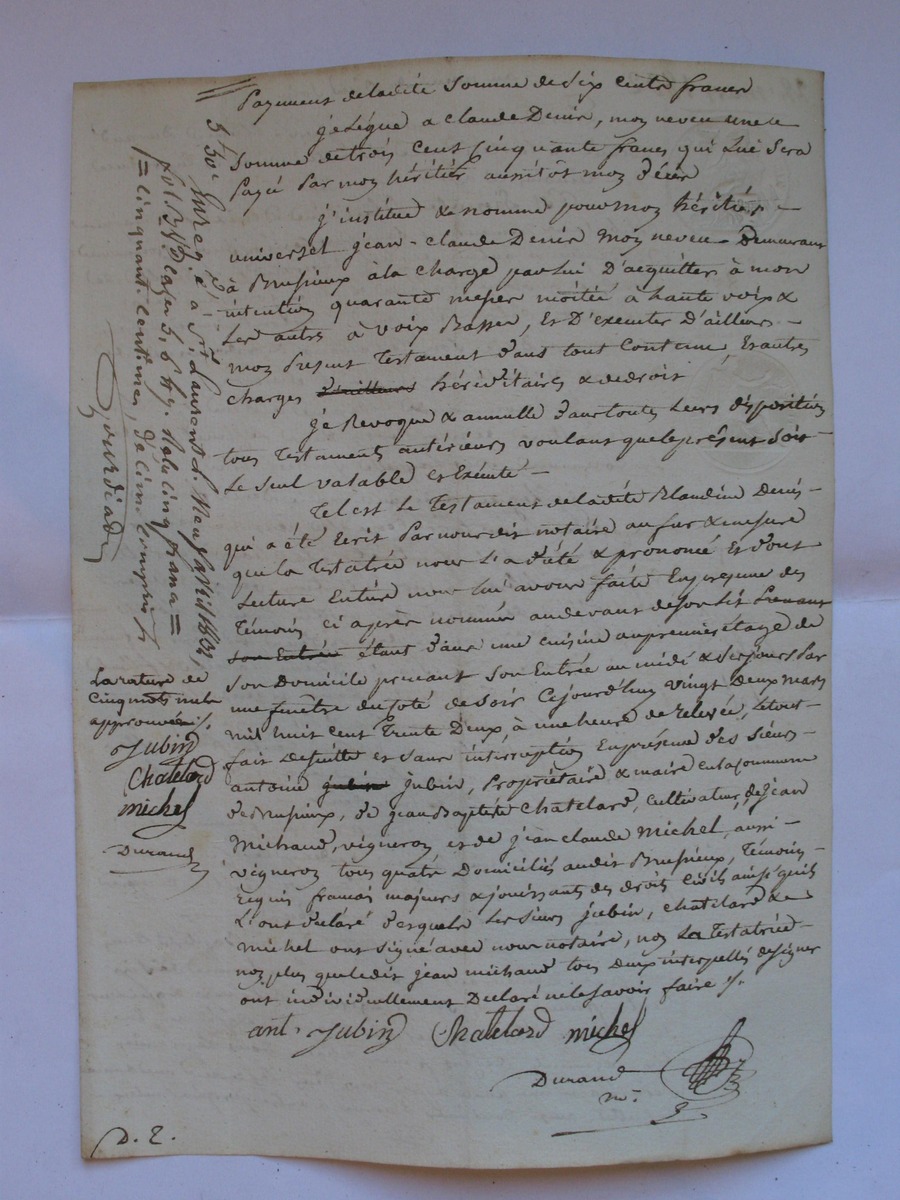 Payement de ladite Somme de Six Cents francs
je Légue a Claude Denis, moz neveu une
Somme de trois Cent Cinquante francs qui Lui Sera
Payé Par moz héritier aussitôt moz décès
j'institue & nomme pour moz héritier
universel jean-Claude Denis moz neveu Demeurant
à Brussieux à la Charge par Lui D'acquitter à mon
intention quarante messes moitié à haute voix &
Les autres à voix Basses, Et D'executer D'ailleurs
moz Present Testament dans tout Contenu, Et autres
Charges d'ailleurs héréditaires & de droit
je Revoque & annulle toutes
tous Testaments antérieurs voulant que le présent Soit
Le Seul valable et Exécuté
Tel est Le Testament de ladite Blandine Denis
qui a été Ecrit Par nous dit notaire au fur & mesure
que la Testatrice nous L'a dicté & prononcé Et dont
Lecture Entière nous lui avons faite En présence des
Témoins Ci après nommés au devant de son Lit Prenant
Son Entrée étant dans une Cuisine au premier étage de
Son Domicile prenant Son Entrée au midi & Ses jours Par
une fenêtre du Coté de Soir Cejourd'huy vingt Deux mars
mil huit Cent Trente Deux, à une heure de relevée, Le tout
fait de suitte et Sans interruption En présence des Sieurs
antoine jubin jubin, Propriétaire & maire en la Commune
de Brussieux, de jean Baptiste Chatelard, Cultivateur, de jean
Michaud, vigneroz et de jean Claude Michel, aussi
vigneroz tous quatre Domiciliés audit Brussieux, Témoins
Requis francais majeurs & jouissants des droits Civils ainsi qu'ils
L'ont déclaré desquels Les Sieurs jubin, Chatelard &
michel ont Signé avec nous notaire, noz La Testatrice
noz plus que ledit jean michaud tous Deux interpellés de Signer
ont individuellement Declaré ne le Savoir faire ./.
ant. Jubin Chatelard michel
Durand
n.re
D. T.
5f 50c
Enreg.é à St Laurent d.
fol. Case 5, 6
Reçu cinq francs =
= Cinquant. Centimes, décime Compris
La rature de
Cinq mots nuls
approuvée ./.
Jubin
Chatelard
michel
Durand